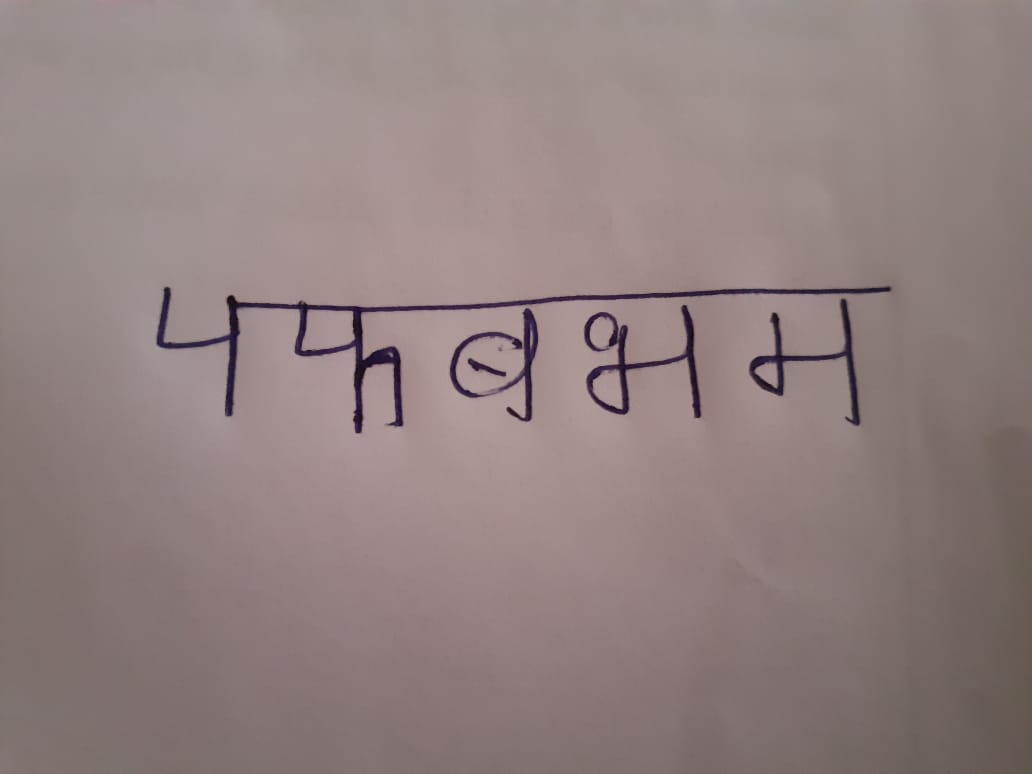 पफबभम